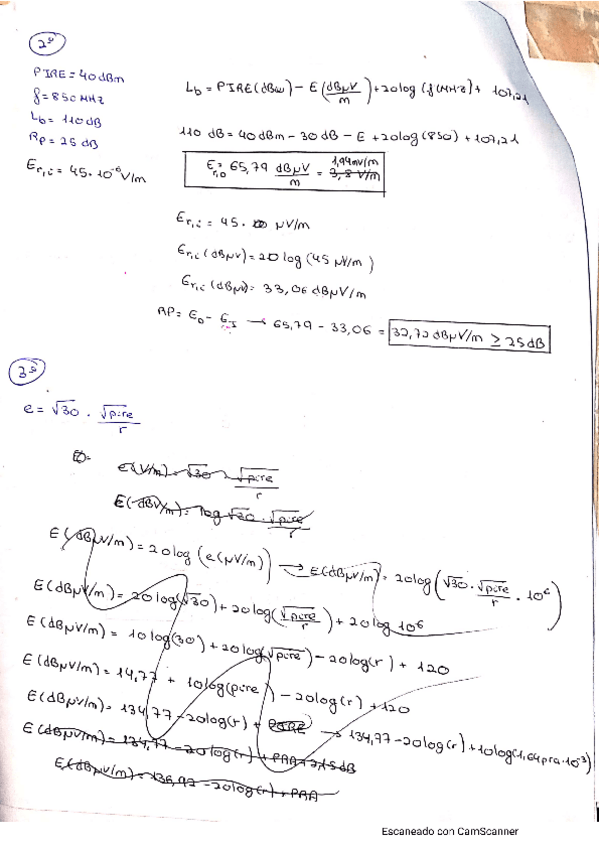 2º
PIRE = 40 dBm
f = 850 MHz
Lb = 110 dB
Rp = 25 dB
Er,i = 45 · 10⁻⁶ V/m
Lb = PIRE (dBW) - E (dBμV/m) + 20 log (f(MHz)) + 107,21
110 dB = 40 dBm - 30 dB - E + 20 log (850) + 107,21
Er,0 = 65,79 dBμV/m = 1,94 mV/m 3,8 V/m
Er,i = 45 · μV/m
Er,i (dBμV) = 20 log (45 μV/m)
Er,i (dBμV) = 33,06 dBμV/m
RP = E0 - EI → 65,79 - 33,06 = 32,72 dBμV/m ≥ 25 dB
3º
e = √30 · √pire / r
e(V/m) = √30 · √pire / r
E(dBV/m) = log √30 · √pire / r
E(dBμV/m) = 20 log (e(μV/m)) → E(dBμV/m) = 20 log (√30 · √pire / r · 10⁶)
E(dBμV/m) = 20 log (√30) + 20 log (√pire / r) + 20 log 10⁶
E(dBμV/m) = 10 log (30) + 20 log (√pire) - 20 log (r) + 120
E(dBμV/m) = 14,77 + 10 log (pire) - 20 log (r) + 120
E(dBμV/m) = 134,77 - 20 log (r) + PIRE → 134,77 - 20 log (r) + 10 log (1,64 pra · 10⁻³)
E(dBμV/m) = 134,77 - 20 log (r) + PRA + 2,15 dB
E(dBμV/m) = 136,92 - 20 log (r) + PRA
Escaneado con CamScanner